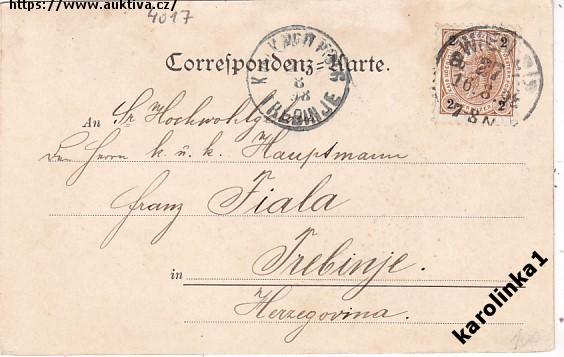 https://www.auktiva.cz/
4017
Correspondenz-Karte.
TREBINJE
8
98
2 2
2 2
WIEN
16.8
An Sr Hochwohlg
Den Herrn k. u. k. Hauptmann
Franz Fiala
in Trebinje.
Herzegovina.
karolinka1